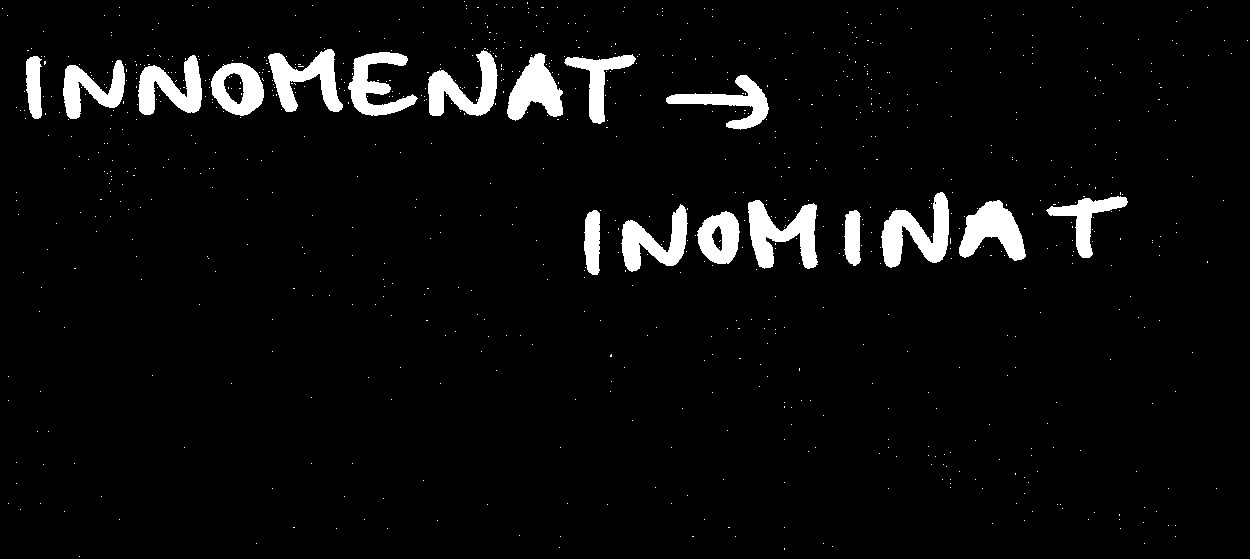 INNOMENAT →
INOMINAT